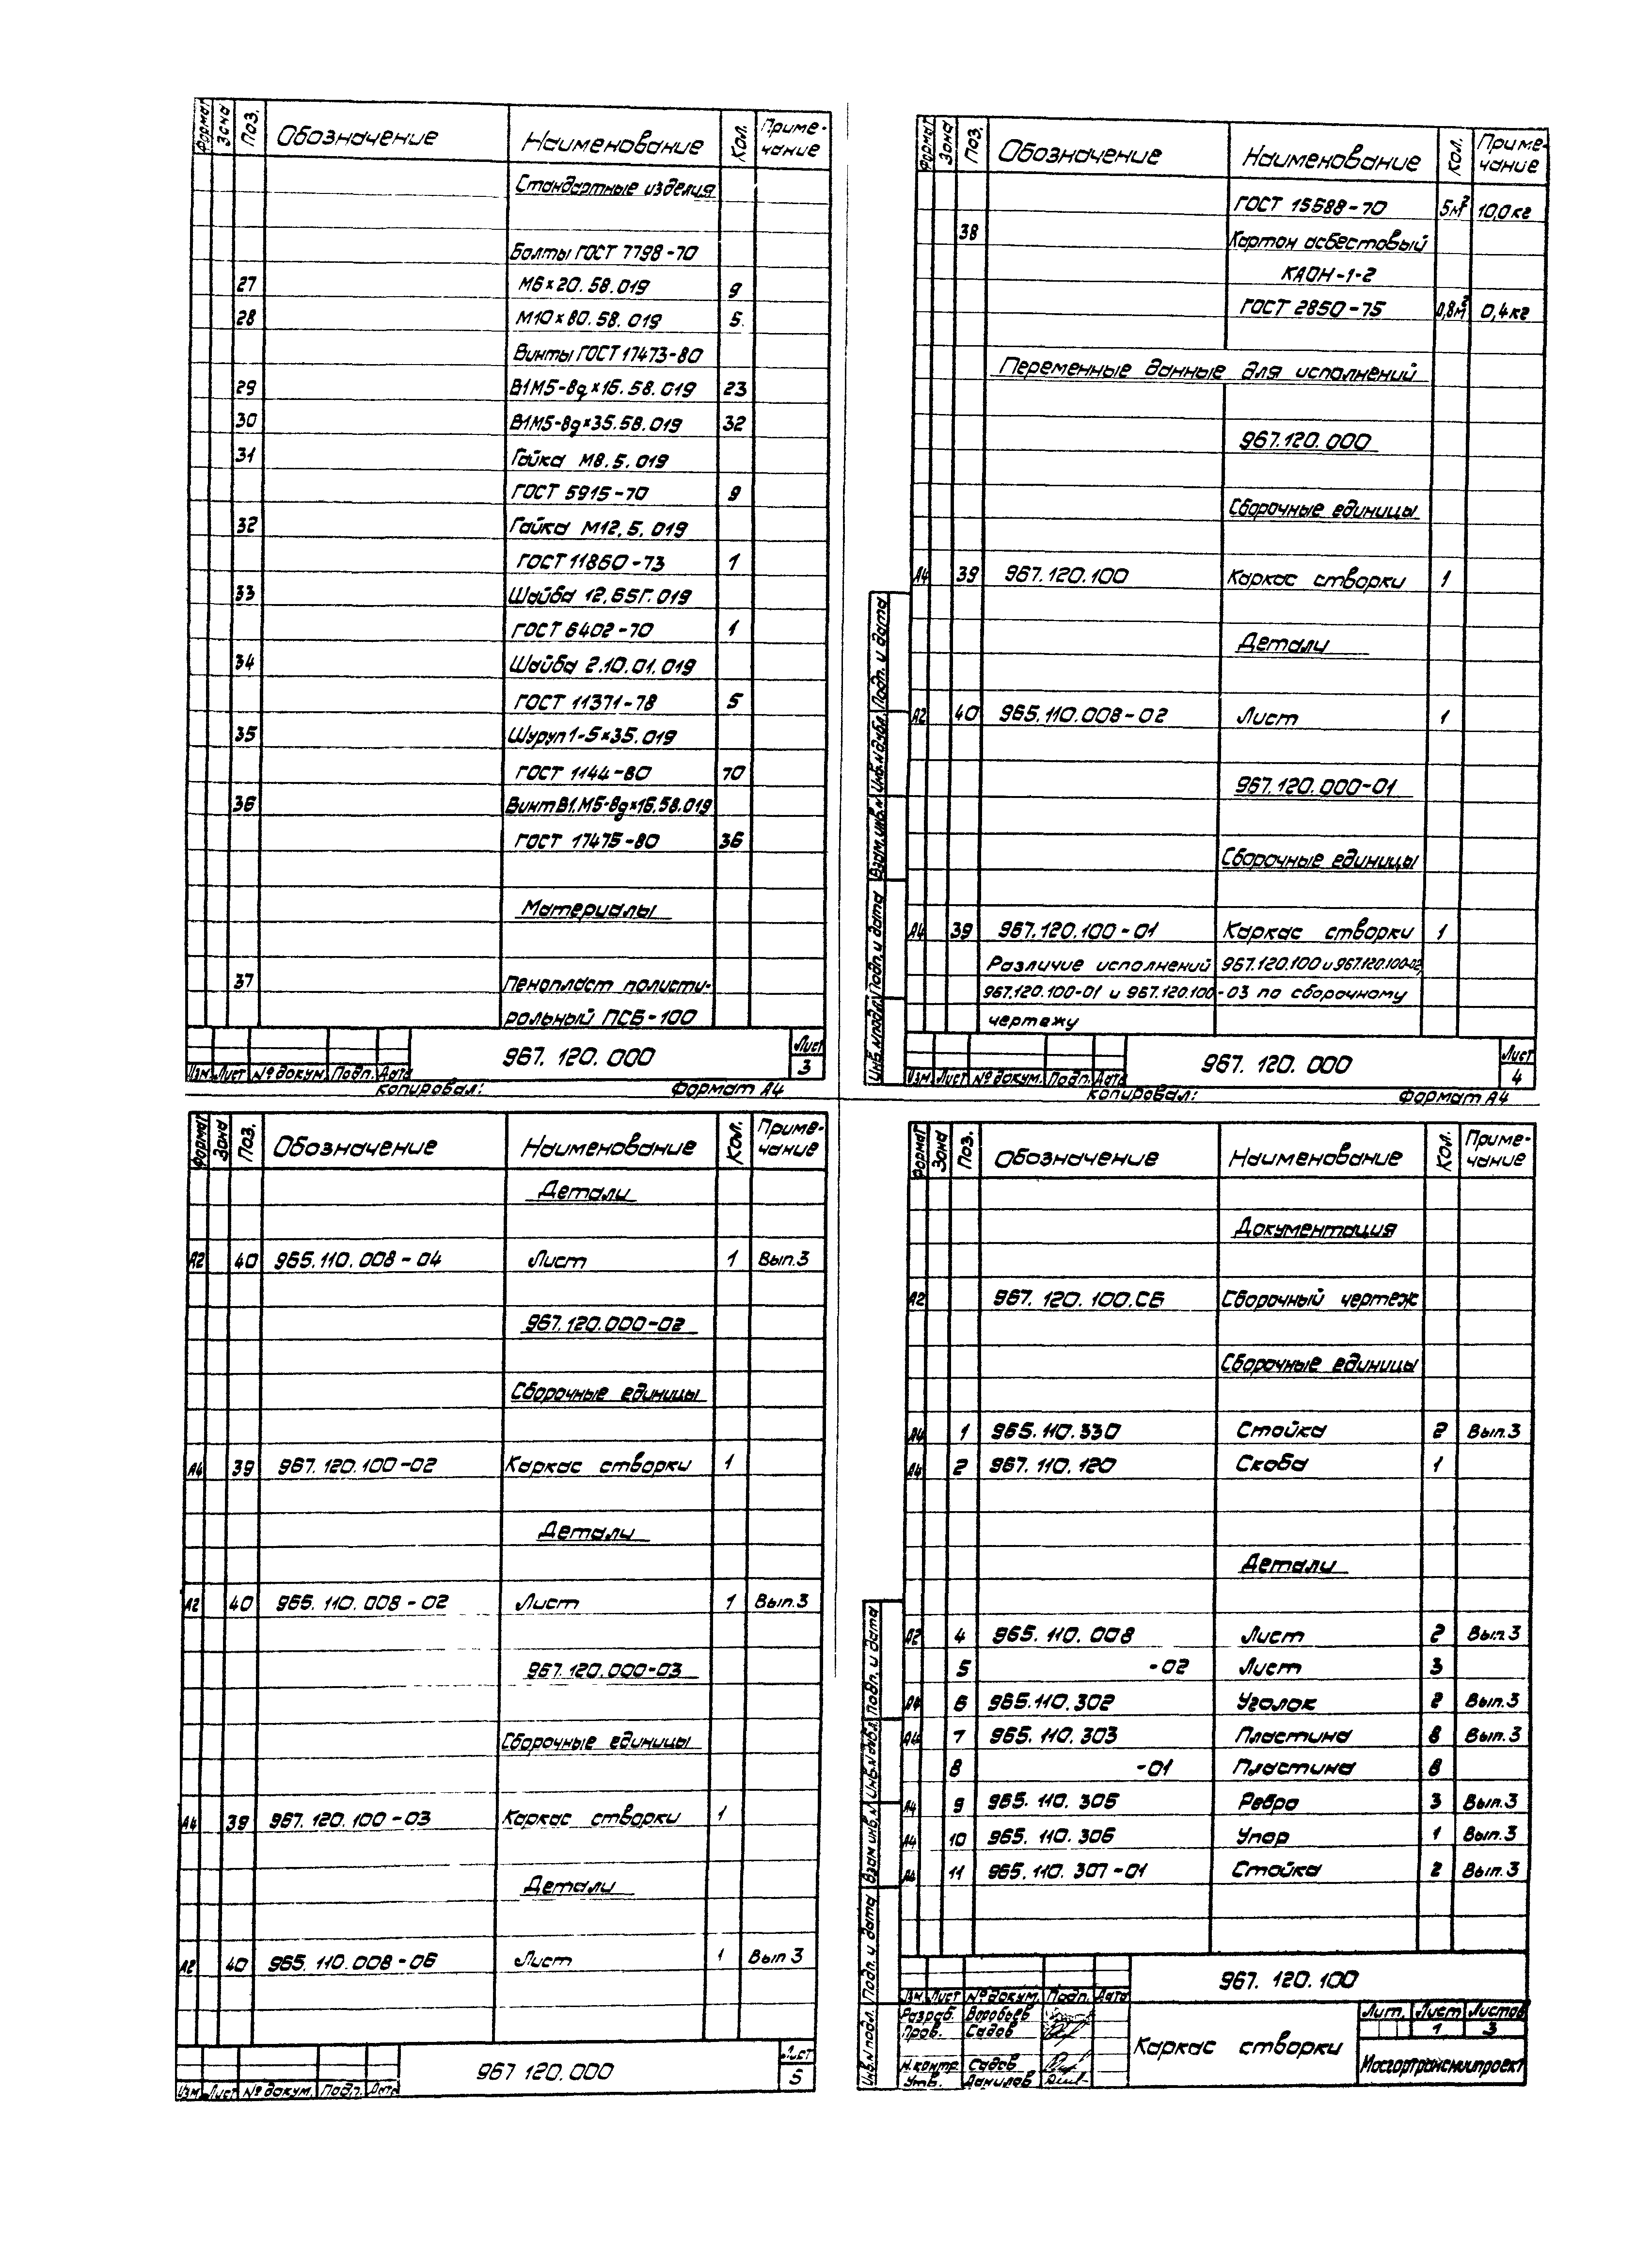 Формат Зона Поз. Обозначение Наименование Кол. Приме-
чание
Стандартные изделия
Болты ГОСТ 7798-70
27 М6×20.58.019 9
28 М10×80.58.019 5
Винты ГОСТ 17473-80
29 В1М5-8g×16.58.019 23
30 В1М5-8g×35.58.019 32
31 Гайка М8.5.019
ГОСТ 5915-70 9
32 Гайка М12.5.019
ГОСТ 11860-73 1
33 Шайба 12.65Г.019
ГОСТ 6402-70 1
34 Шайба 2.10.01.019
ГОСТ 11371-78 5
35 Шуруп 1-5×35.019
ГОСТ 1144-80 70
36 Винт В1.М5-8g×16.58.019
ГОСТ 17475-80 36
Материалы
37 Пенопласт полисти-
рольный ПСБ-100
967.120.000 Лист
3
Изм. Лист № докум. Подп. Дата
копировал: Формат А4
Формат Зона Поз. Обозначение Наименование Кол. Приме-
чание
ГОСТ 15588-70 5м² 10,0кг
38 Картон асбестовый
КАОН-1-2
ГОСТ 2850-75 0,8м² 0,4кг
Переменные данные для исполнений
967.120.000
Сборочные единицы
А4 39 967.120.100 Каркас створки 1
Детали
А2 40 965.110.008-02 Лист 1
967.120.000-01
Сборочные единицы
А4 39 967.120.100-01 Каркас створки 1
Различие исполнений 967.120.100 и 967.120.100-02,
967.120.100-01 и 967.120.100-03 по сборочному
чертежу
Инв.№подл. Подп. и дата Взам.инв.№ Инв.№дубл. Подп. и дата
967.120.000 Лист
4
Изм. Лист № докум. Подп. Дата
копировал: Формат А4
Формат Зона Поз. Обозначение Наименование Кол. Приме-
чание
Детали
А2 40 965.110.008-04 Лист 1 Вып.3
967.120.000-02
Сборочные единицы
А4 39 967.120.100-02 Каркас створки 1
Детали
А2 40 965.110.008-02 Лист 1 Вып.3
967.120.000-03
Сборочные единицы
А4 39 967.120.100-03 Каркас створки 1
Детали
А2 40 965.110.008-06 Лист 1 Вып 3
967 120.000 Лист
5
Изм. Лист № докум. Подп. Дата
Формат Зона Поз. Обозначение Наименование Кол. Приме-
чание
Документация
А2 967.120.100.СБ Сборочный чертеж
Сборочные единицы
А4 1 965.110.330 Стойка 2 Вып.3
А4 2 967.110.120 Скоба 1
Детали
А2 4 965.110.008 Лист 2 Вып 3
5 -02 Лист 3
А4 6 965.110.302 Уголок 2 Вып.3
А4 7 965.110.303 Пластина 8 Вып.3
8 -01 Пластина 8
А4 9 965.110.305 Ребро 3 Вып.3
А4 10 965.110.306 Упор 1 Вып.3
А4 11 965.110.307-01 Стойка 2 Вып.3
Инв.№подл. Подп. и дата Взам инв.№ Инв.№дубл. Подп. и дата
967.120.100
Изм. Лист № докум. Подп. Дата
Разраб. Воробьев
Пров. Садов
Н.контр. Садов
Утв. Данилов
Каркас створки
Лит. Лист Листов
1 3
Мосгортрансниипроект